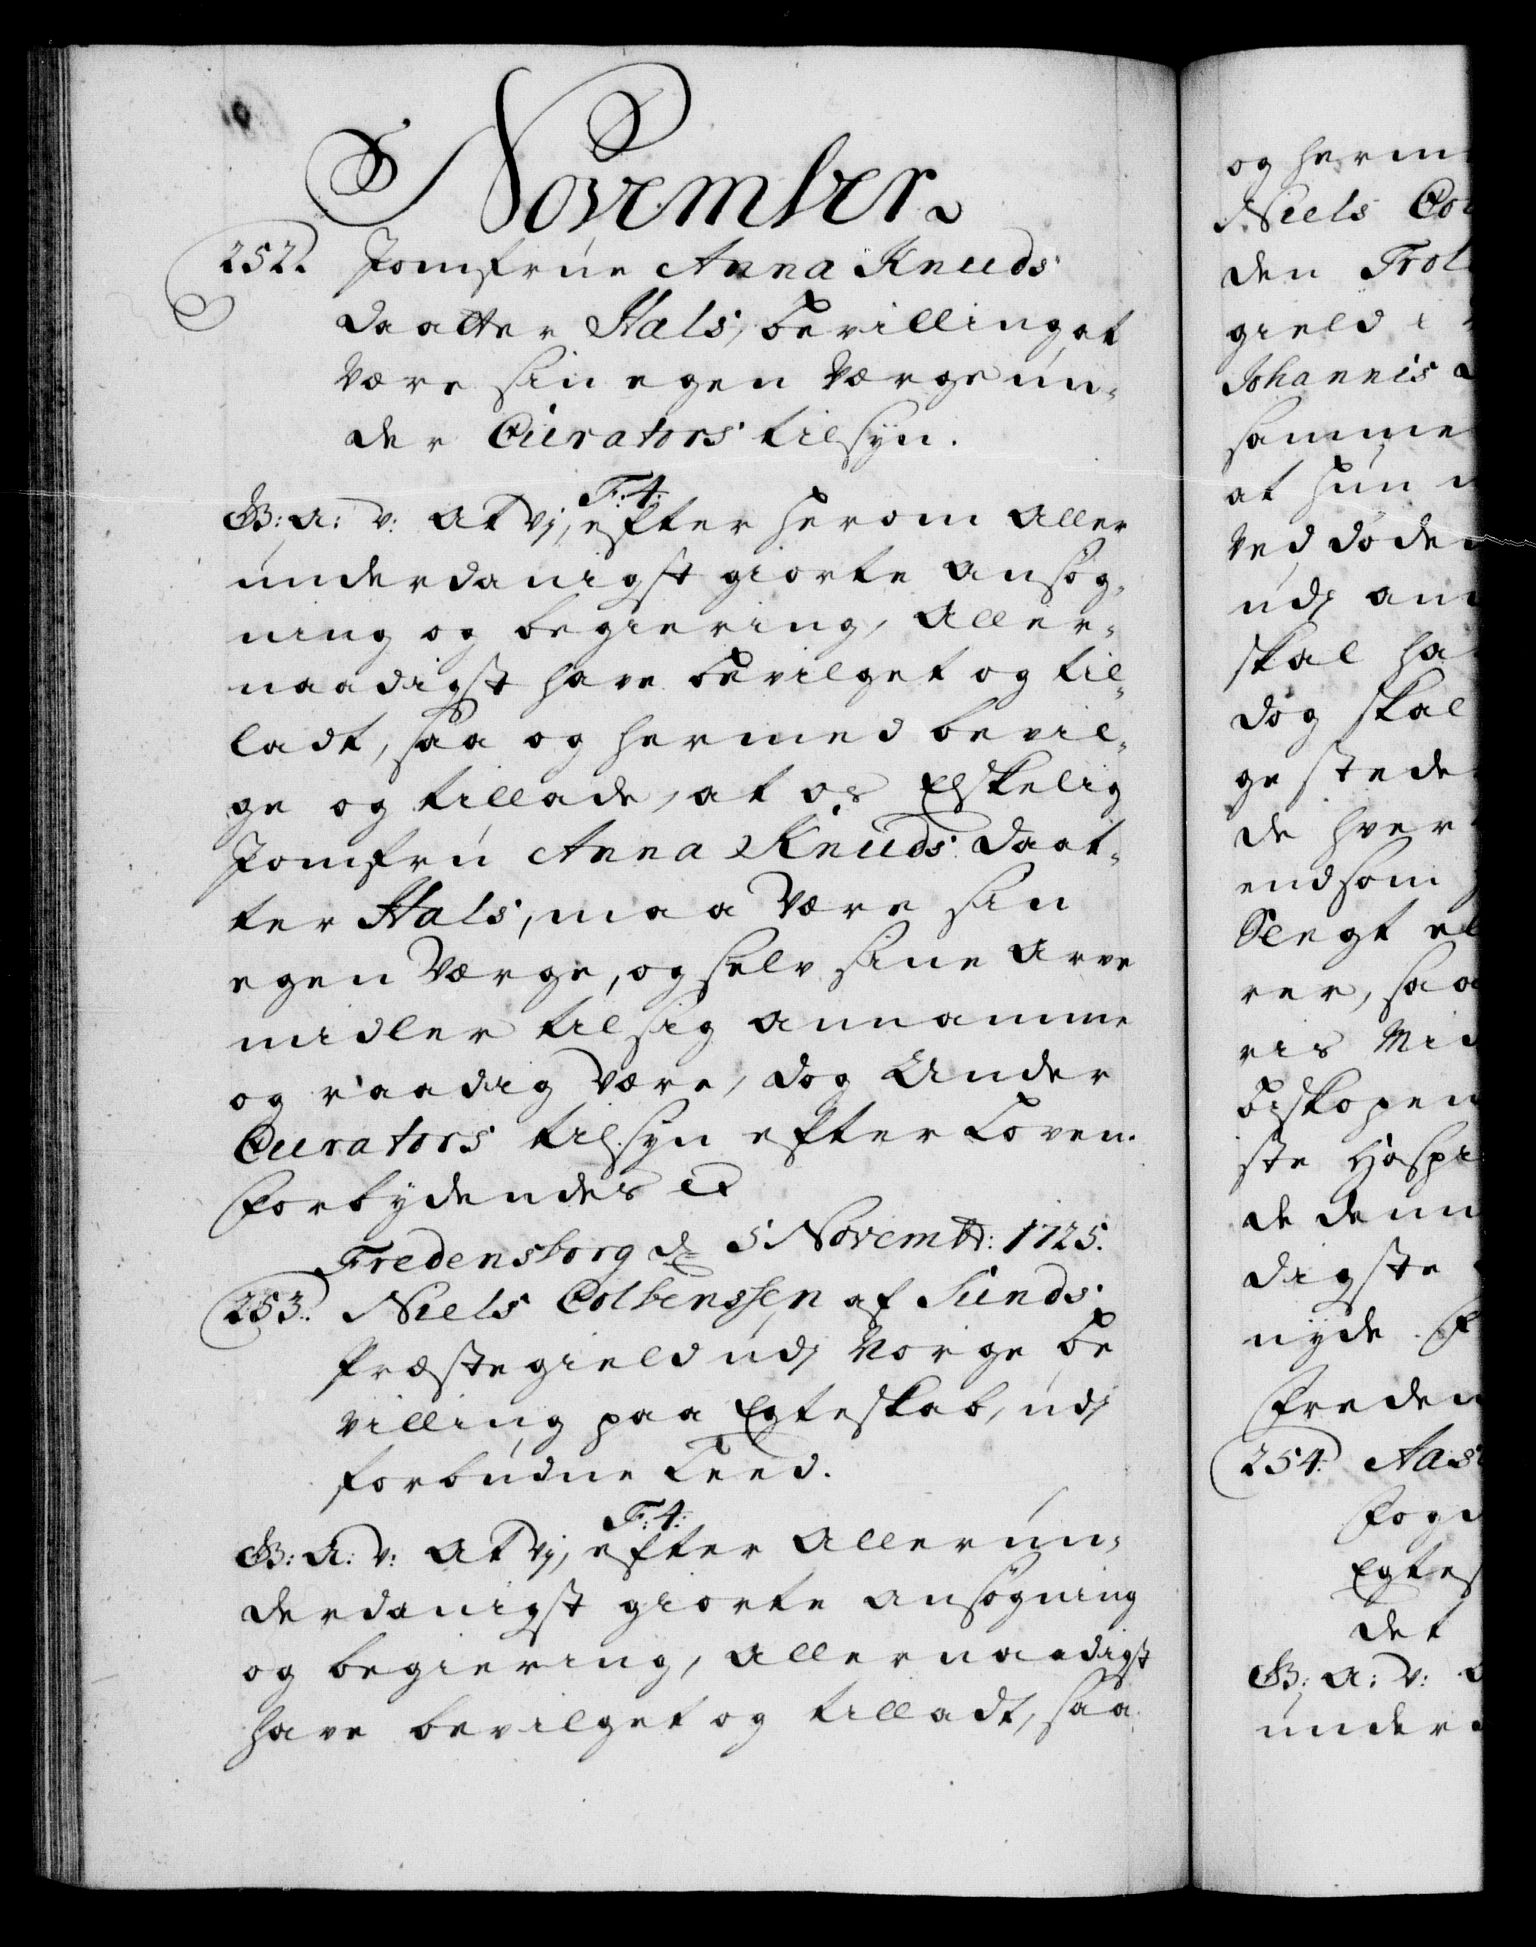 November.
252. Jomfrue Anna Knuds
daatter Hals, bevilling, at
være sin egen Værge un-
der Curators tilsyn.
F: 4:
G: A: V: At Vj, efter herom Aller
underdanigst giorte ansøg-
ning og begiering, Aller-
naadigst have bevilget og til-
ladt, saa og hermed bevil-
ge og tillade, at os Elskelig
Jomfru Anna Knuds daat-
ter Hals, maa være sin
egen Værge, og selv sine Arve
midler til sig annamme
og raadig være, dog Under
Curators tilsyn efter Loven.
Forbydendes etc
Fredensborg d. 5 Novembr: 1725.
253. Niels Colbenssen af Sunds
Præstegield udj Norge, be
villing paa Egteskab, udj
forbudne Leed.
F: 4:
G: A: V: At Vj, efter Allerun-
derdanigst giorte ansøgning
og begiering, Allernaadigst
have bevilget og tilladt, saa
og herm
Niels Col
den Trol
gield i
Johannis
samme
at hun
Ved døden
udj an
skal ha
dog skal
ge stede
de hver
endsom
Slegt el
rer, saa
ris Mid
Biskopen
ste Hospi
de denn
digste
nyde. F
Freden
254. Aas
Fogd
Egtes
det
G: A: V:
under